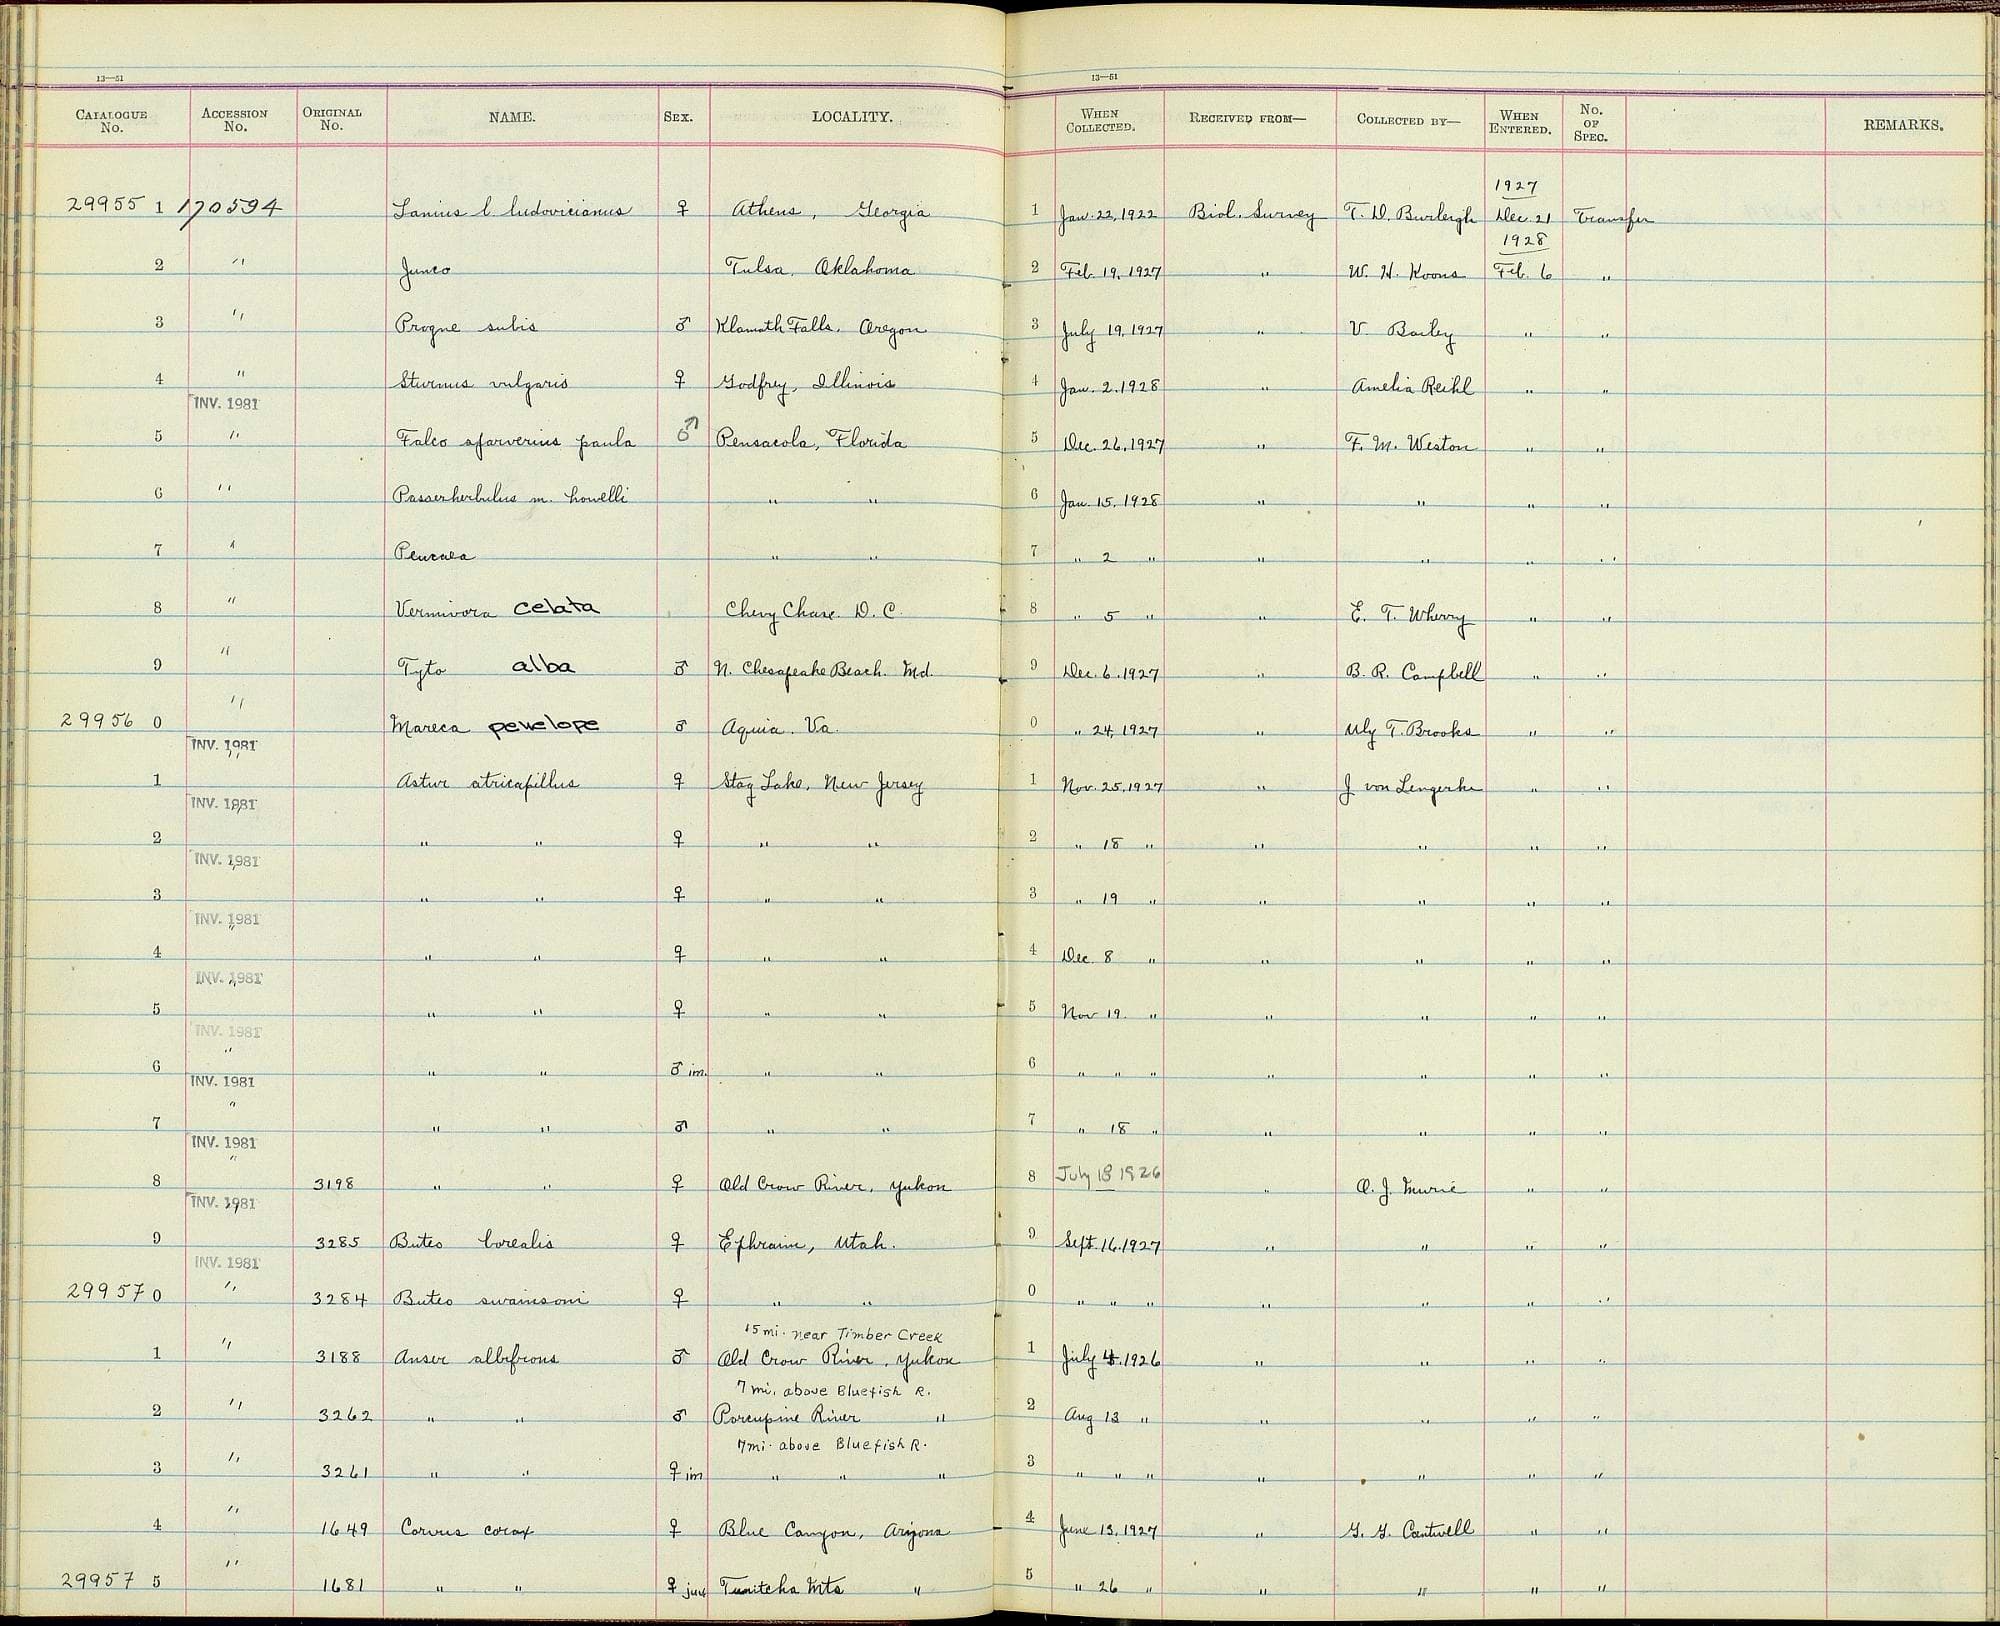 13—51 13—51
CATALOGUE No. ACCESSION No. ORIGINAL No. NAME. SEX. LOCALITY. WHEN COLLECTED. RECEIVED FROM— COLLECTED BY— WHEN ENTERED. No. OF SPEC. REMARKS.
1927
29955 1 170594 Lanius l. ludovicianus ♀ Athens, Georgia 1 Jan. 22, 1922 Biol. Survey T. D. Burleigh Dec. 21 Transfer
1928
2 " Junco Tulsa, Oklahoma 2 Feb. 19, 1927 " W. H. Koons Feb. 6 "
3 " Progne subis ♂ Klamath Falls, Oregon 3 July 19, 1927 " V. Bailey " "
4 " Sturnus vulgaris ♀ Godfrey, Illinois 4 Jan. 2, 1928 " Amelia Reihl " "
INV. 1981
5 " Falco sparverius paula ♂ Pensacola, Florida 5 Dec. 26, 1927 " F. M. Weston " "
6 " Passerherbulus m. howelli " " 6 Jan. 15, 1928 " " " "
7 " Peucaea " " 7 " 2 " " " " "
8 " Vermivora celata Chevy Chase. D. C. 8 " 5 " " E. T. Wherry " "
9 " Tyto alba ♂ N. Chesapeake Beach. Md. 9 Dec. 6, 1927 " B. R. Campbell " "
29956 0 " Mareca penelope ♂ Aquia. Va. 0 " 24, 1927 " Uly T. Brooks " "
INV. 1981
1 " Astur atricapillus ♀ Stag Lake, New Jersey 1 Nov. 25, 1927 " J von Lengerke " "
INV. 1981
2 " " " ♀ " " 2 " 18 " " " " "
INV. 1981
3 " " " ♀ " " 3 " 19 " " " " "
INV. 1981
4 " " " ♀ " " 4 Dec. 8 " " " " "
INV. 1981
5 " " " ♀ " " 5 Nov 19. " " " " "
INV. 1981
6 " " " ♂ im. " " 6 " " " " " " "
INV. 1981
7 " " " ♂ " " 7 " 18 " " " " "
INV. 1981
8 " 3198 " " ♀ Old Crow River, Yukon 8 July 18 1926 " O. J. Murie " "
INV. 1981
9 " 3285 Buteo borealis ♀ Ephraim, Utah. 9 Sept. 16, 1927 " " " "
INV. 1981
29957 0 " 3284 Buteo swainsoni ♀ " " 0 " " " " " " "
15 mi. near Timber Creek
1 " 3188 Anser albifrons ♂ Old Crow River, Yukon 1 July 1926 " " " "
7 mi. above Bluefish R.
2 " 3262 " " ♂ Porcupine River " 2 Aug 13 " " " " "
7 mi. above Bluefish R.
3 " 3261 " " ♀ im " " " 3 " " " " " " "
4 " 1649 Corvus corax ♀ Blue Canyon, Arizona 4 June 13, 1927 " G. G. Cantwell " "
29957 5 " 1681 " " ♀ juv Tunitcha Mts " 5 " 26 " " " " "